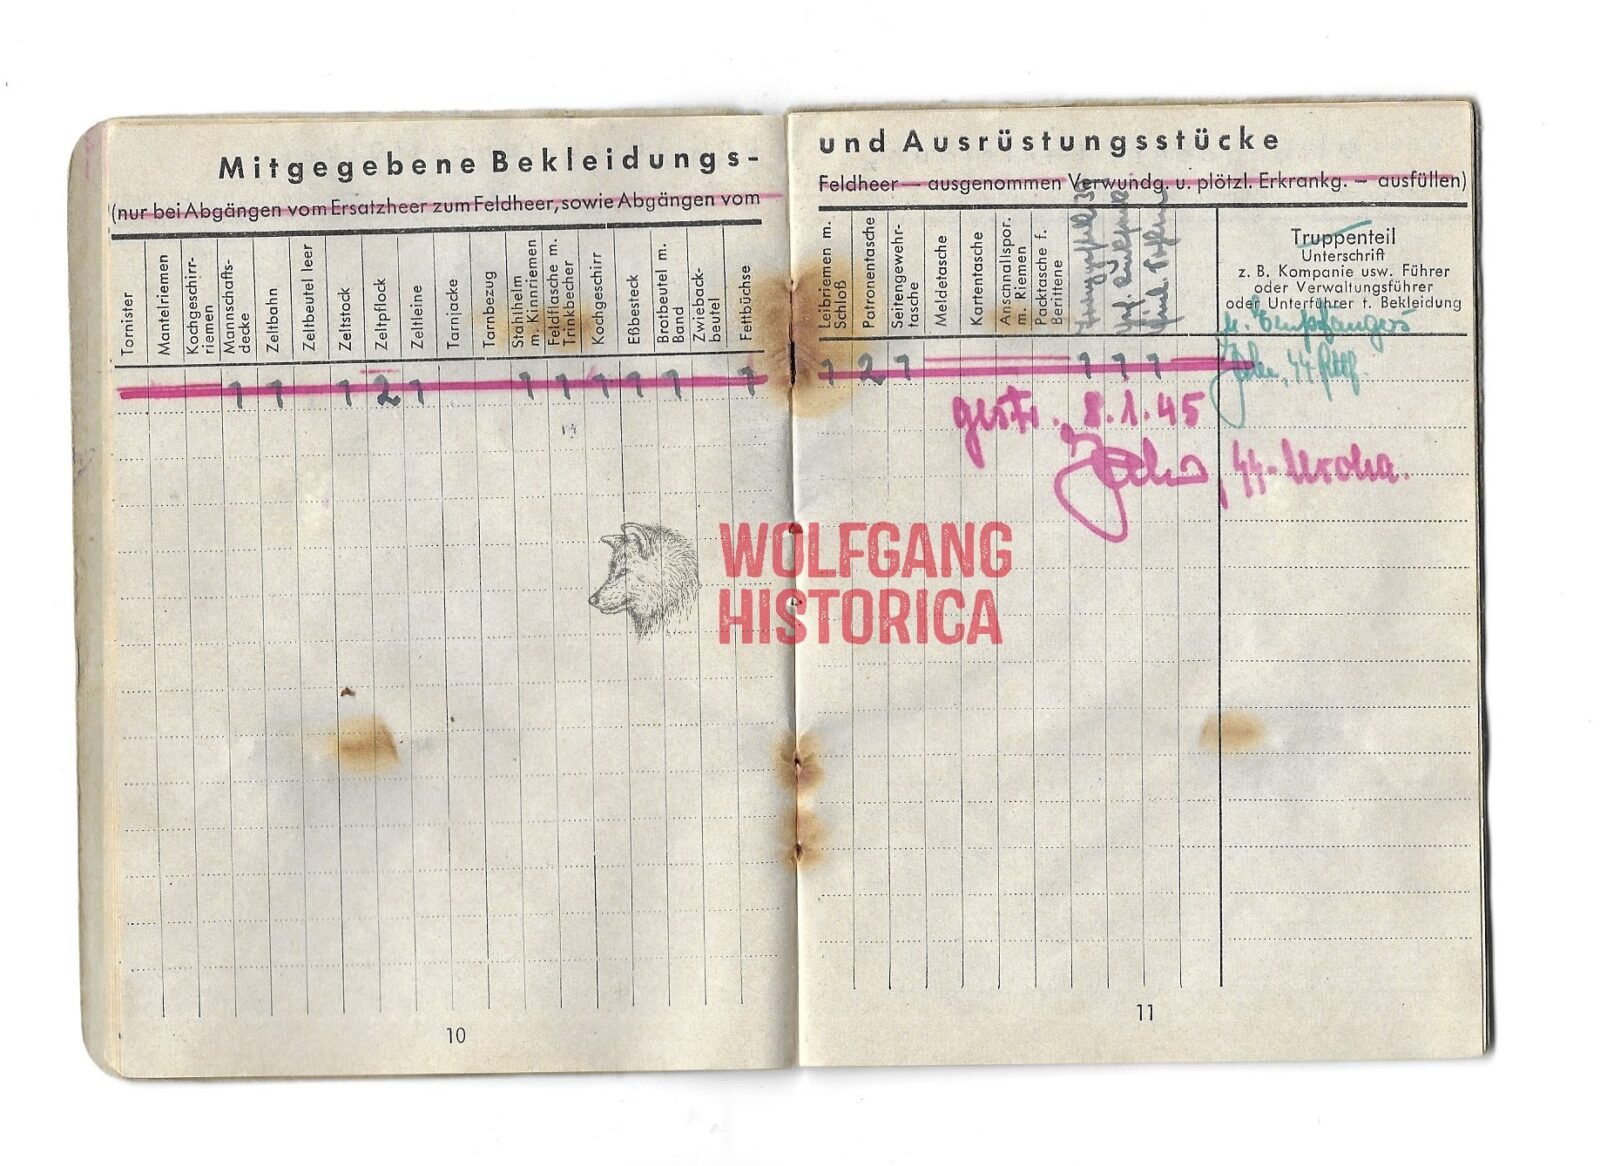 Mitgegebene Bekleidungs-
(nur bei Abgängen vom Ersatzheer zum Feldheer, sowie Abgängen vom
Tornister
Mantelriemen
Kochgeschirr-
riemen
Mannschafts-
decke
Zeltbahn
Zeltbeutel leer
Zeltstock
Zeltpflock
Zeltleine
Tarnjacke
Tarnbezug
Stahlhelm
m. Kinnriemen
Feldflasche m.
Trinkbecher
Kochgeschirr
Eßbesteck
Brotbeutel m.
Band
Zwieback-
beutel
Fettbüchse
1 1 1 2 1 1 1 1 1 1 1
10
und Ausrüstungsstücke
Feldheer — ausgenommen Verwundg. u. plötzl. Erkrankg. — ausfüllen)
Leibriemen m.
Schloß
Patronentasche
Seitengewehr-
tasche
Meldetasche
Kartentasche
Anschnallspor.
m. Riemen
Packtasche f.
Berittene
Truppenteil
Unterschrift
z. B. Kompanie usw. Führer
oder Verwaltungsführer
oder Unterführer f. Bekleidung
1 2 1 1 1 1
gestr. 8.1.45
44-Uscha.
11
WOLFGANG
HISTORICA